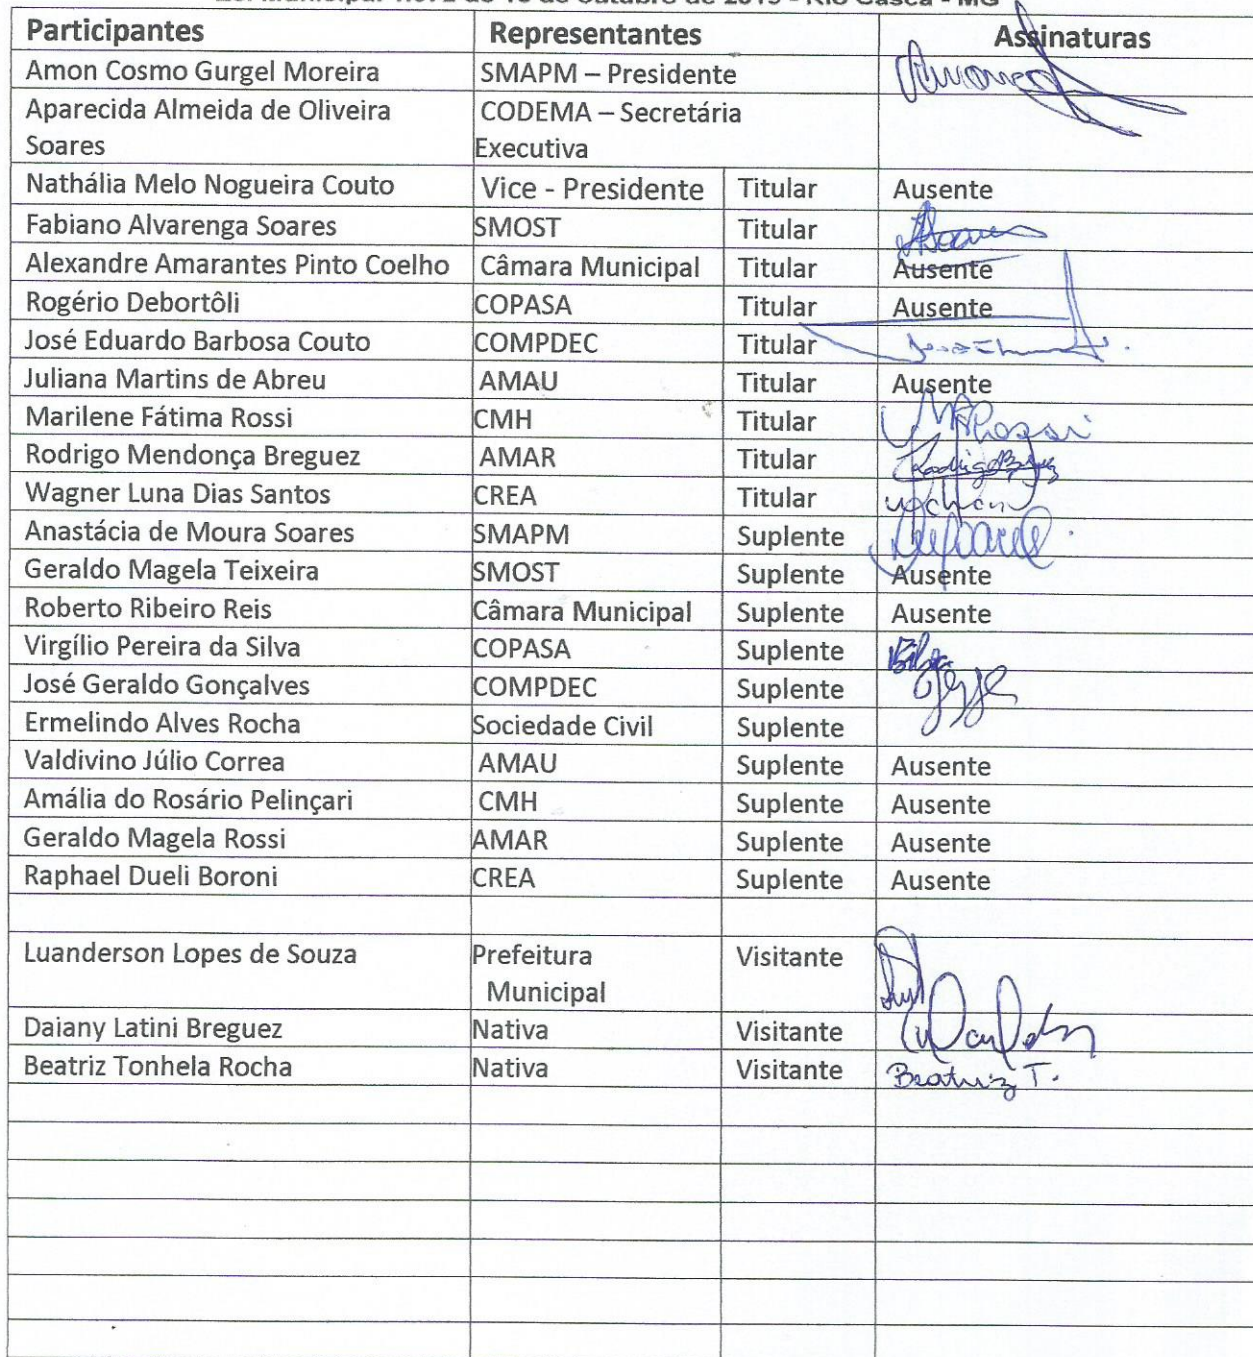 de 2019 - Rio Casca - MG
Participantes Representantes Assinaturas
Amon Cosmo Gurgel Moreira SMAPM – Presidente
Aparecida Almeida de Oliveira CODEMA – Secretária
Soares Executiva
Nathália Melo Nogueira Couto Vice - Presidente Titular Ausente
Fabiano Alvarenga Soares SMOST Titular
Alexandre Amarantes Pinto Coelho Câmara Municipal Titular Ausente
Rogério Debortôli COPASA Titular Ausente
José Eduardo Barbosa Couto COMPDEC Titular
Juliana Martins de Abreu AMAU Titular Ausente
Marilene Fátima Rossi CMH Titular
Rodrigo Mendonça Breguez AMAR Titular
Wagner Luna Dias Santos CREA Titular
Anastácia de Moura Soares SMAPM Suplente
Geraldo Magela Teixeira SMOST Suplente Ausente
Roberto Ribeiro Reis Câmara Municipal Suplente Ausente
Virgílio Pereira da Silva COPASA Suplente
José Geraldo Gonçalves COMPDEC Suplente
Ermelindo Alves Rocha Sociedade Civil Suplente
Valdivino Júlio Correa AMAU Suplente Ausente
Amália do Rosário Pelinçari CMH Suplente Ausente
Geraldo Magela Rossi AMAR Suplente Ausente
Raphael Dueli Boroni CREA Suplente Ausente
Luanderson Lopes de Souza Prefeitura Visitante
Municipal
Daiany Latini Breguez Nativa Visitante
Beatriz Tonhela Rocha Nativa Visitante Beatriz T.